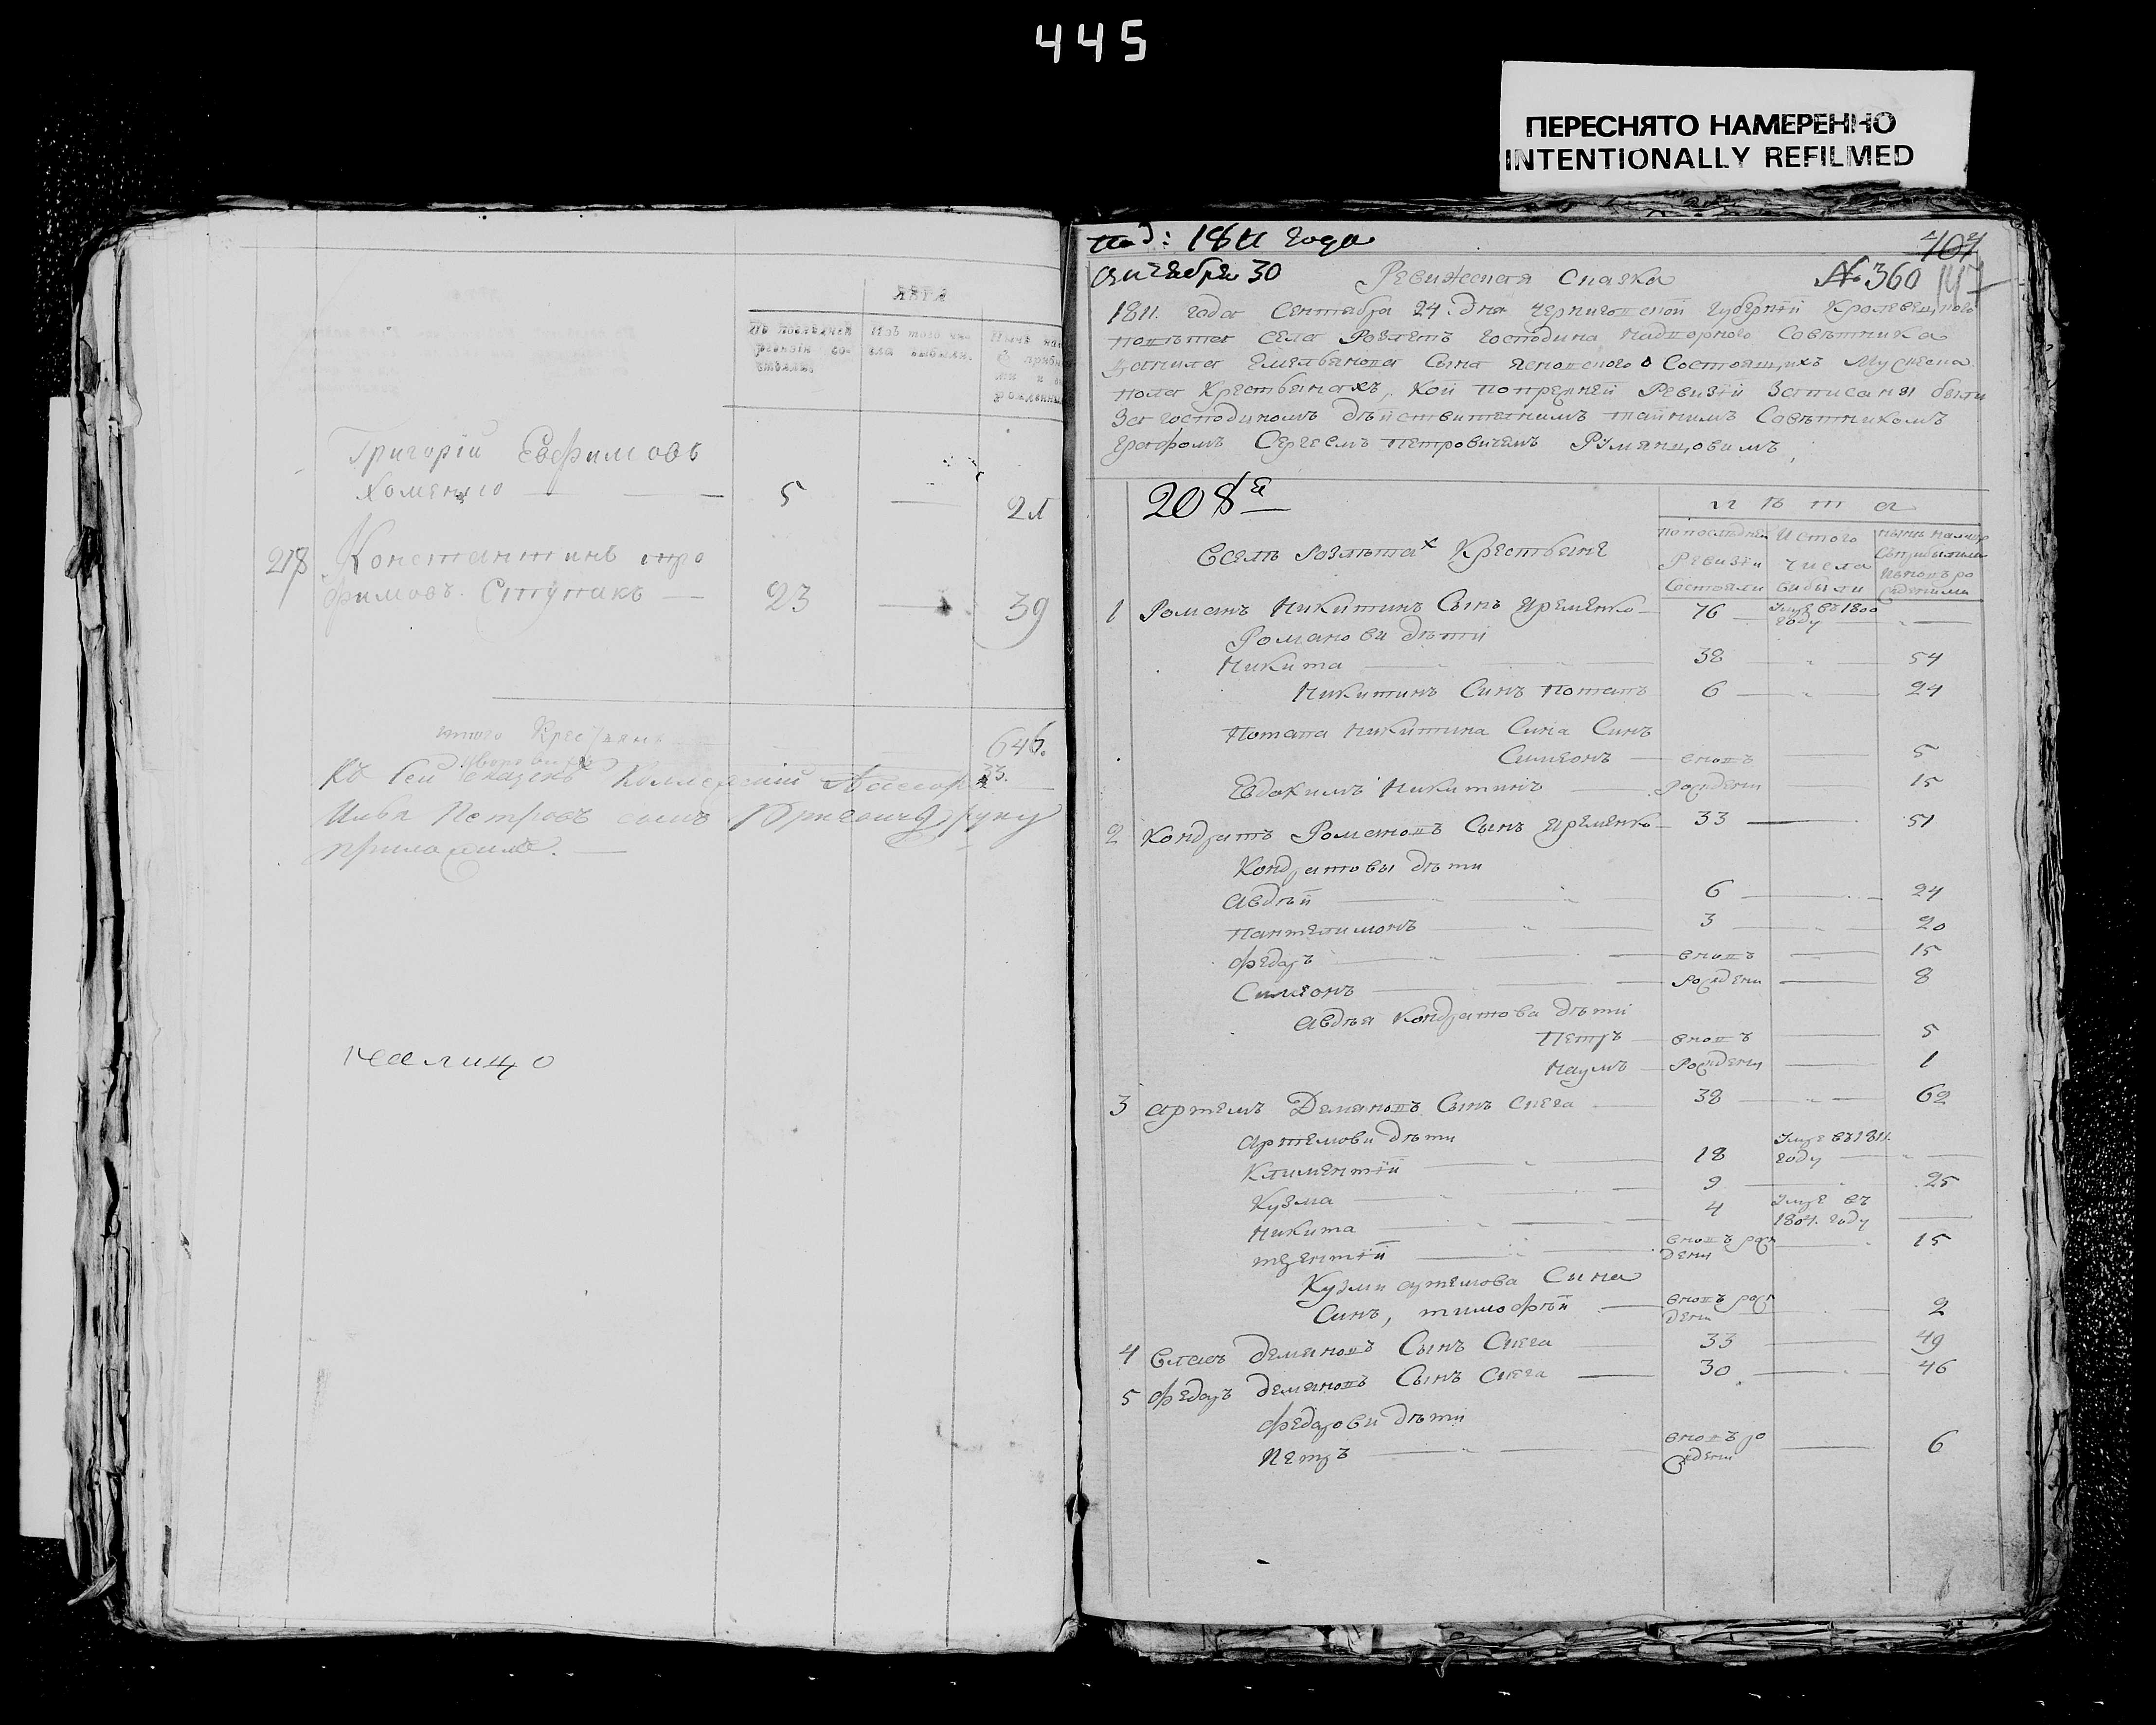 445
ПЕРЕСНЯТО НАМЕРЕННО
INTENTIONALLY REFILMED
Григорій Евфимовъ
Хоменко — 5 — 21
218 Константинъ тро
фимовъ Ступакъ — 23 — 39
итого Крестьянъ 646.
Къ сей сказкѣ Коллежскій Ассесоръ
Илья Петровъ сынъ руку
приложилъ.
под: 1811 года
Октября 30 Ревижская Сказка № 360
1811. года Сентября 24. дня Черниговской Губерніи Кролевецкого
повѣта села Розлетъ господина надворного Совѣтника
Данила Емельянова Сына Ясновского о Состоящихъ Мужеска
пола Крестьянахъ, кои попрежней Ревизіи Записаны были
За господиномъ дѣйствителнимъ тайнимъ Совѣтникомъ
Графомъ Сергеемъ Петровичемъ Румянцовимъ
208я
лѣта
по последней Ревизіи Состояли
Исчого числа вибыли
Вселѣ Разлѣтахъ Крестьяне
1 Романъ Никитинъ Сынъ Яременко — 76 — умре въ 1800 году —
Романови дѣти
Никита — 38 — 54
Никитинъ Синъ Потапъ 6 — 24
Потапа Никитина Сина Синъ
Симеонъ — вновъ — 5
Евдокимъ Никитинъ — рождени — 15
2 Кондратъ Романовъ Сынъ Яременко — 33 — 51
Кондратовы дѣти
Авдѣй — 6 — 24
Пантелимонъ — 3 — 20
Федоръ — вновъ — 15
Симеонъ — рождени — 8
Авдѣя Кондратова дѣти
Петръ — вновъ — 5
Наумъ — рождени — 1
3 Артемъ Демяновъ Сынъ Снега — 38 — 62
Артемови дѣти
Климентій — 18 умре въ 1811. году —
Кузма — 9 — 25
Никита — 4 умре въ 1804. году —
терентій — вновъ рождени — 15
Кузми артемова Сина
Синъ, тимофѣй — вновъ рождени — 2
4 Власъ демяновъ Сынъ Снега — 33 — 49
5 Федоръ демяновъ Сынъ Снега — 30 — 46
Федорови дѣти
Петръ — вновъ рождени — 6